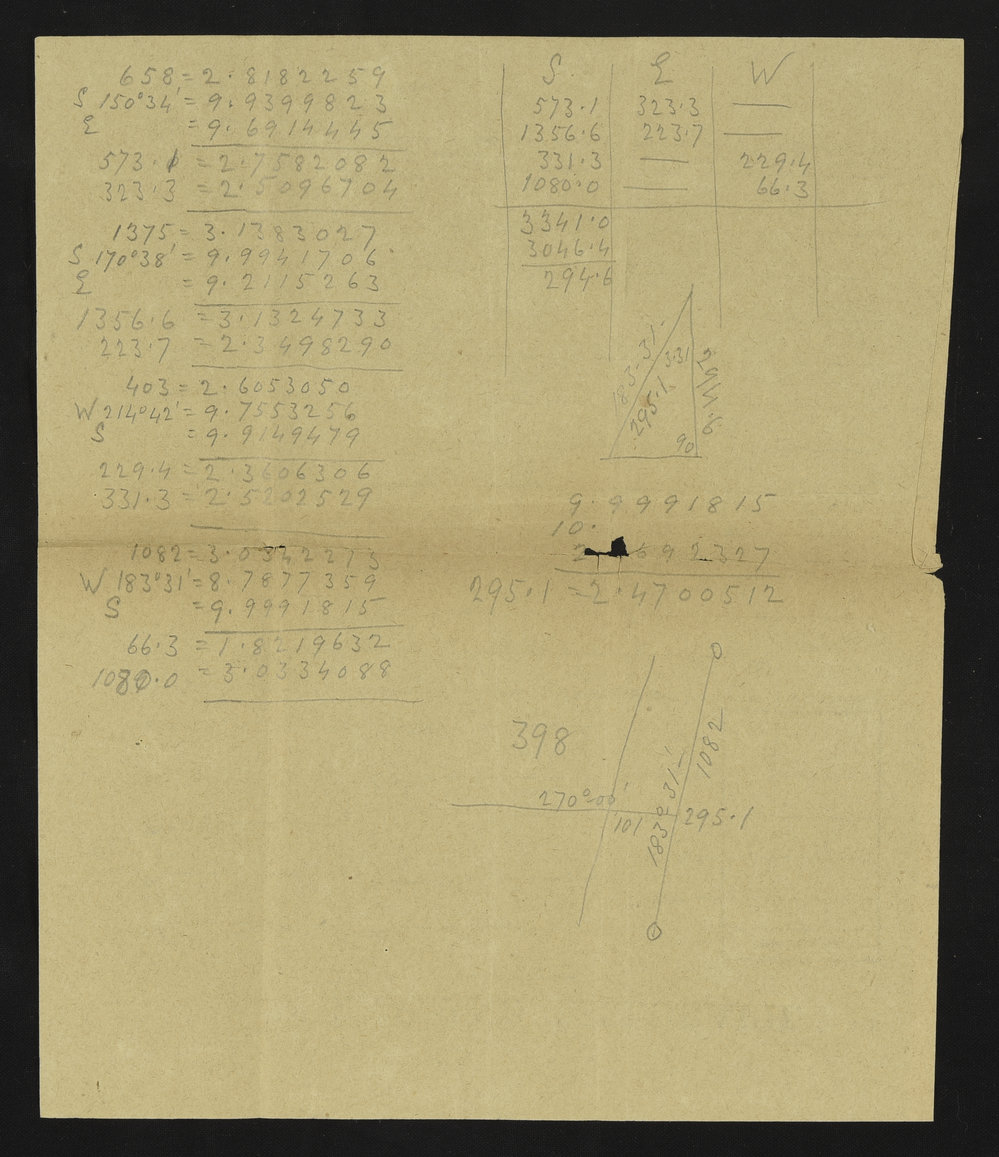 658 = 2.8182259
S 150°34' = 9.9399823
E = 9.6914445
573.1 = 2.7582082
323.3 = 2.5096704
1375 = 3.1383027
S 170°38' = 9.9941706
E = 9.2115263
1356.6 = 3.1324733
223.7 = 2.3498290
403 = 2.6053050
W 214°42' = 9.7553256
S = 9.9149479
229.4 = 2.3606306
331.3 = 2.5202529
1082 = 3.0342273
W 183°31' = 8.7877359
S = 9.9991815
66.3 = 1.8219632
1080.0 = 3.0334088
S. E W
573.1 323.3 —
1356.6 223.7 —
331.3 — 229.4
1080.0 — 66.3
3341.0
3046.4
294.6
183-31'
3.31
295.1
294.6
90
9.9991815
10.
692327
295.1 = 2.4700512
398
270°-00'
101
183°-31'-
1082
295.1